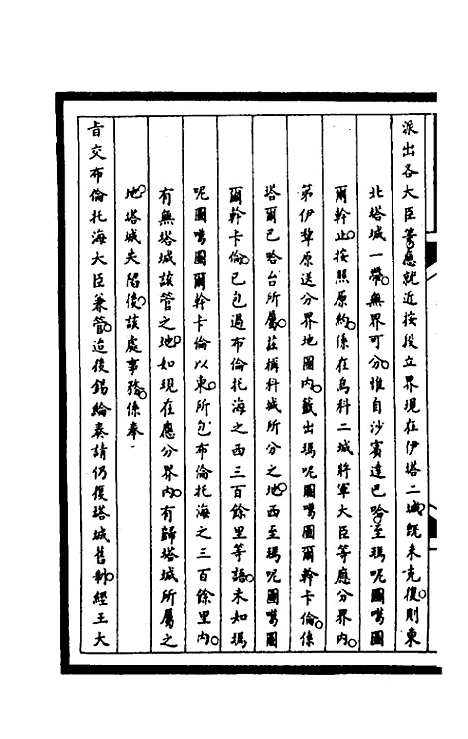 派出各大臣等應就近按段立界現在伊塔二城既未克復則東
北塔城一帶無界可分惟自沙賓達巴哈至瑪呢圖噶圖
爾幹止按照原約係在烏科二城將軍大臣等應分界內
第伊犂原送分界地圖內籤出瑪呢圖噶圖爾幹卡倫係
塔爾巴哈台所屬茲稱科城所分之地西至瑪呢圖噶圖
爾幹卡倫已包過布倫托海之西三百餘里等語未知瑪
呢圖噶圖爾幹卡倫以東所包布倫托海之三百餘里內
有無塔城該管之地如現在應分界內有歸塔城所屬之
地塔城失陷後該處事務係奉
旨交布倫托海大臣兼管迨後錫綸奏請仍復塔城舊制經王大